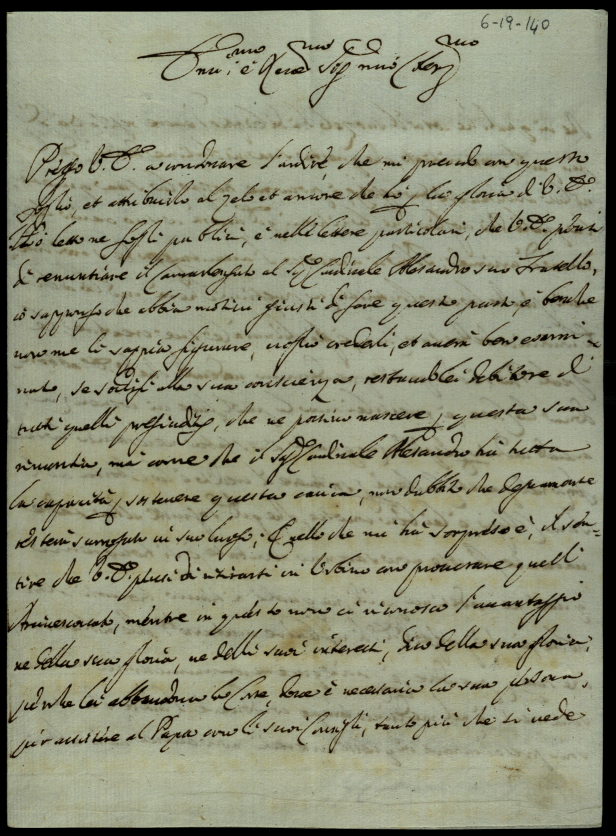 6-19-140
Prego V. E. a condonare l'ardire, che mi prendo con questo
foglio, et attribuirlo al zelo et amore che hò p la gloria di V. E.
Hò letto ne fogli publici, e nelle lettere particolari, che V. E. pensi
di renuntiare il Camarlengato al Sig.r Cardinale Alesandro suo Fratello,
io suppongo che abbia motivi giusti di fare questo passo, e benche
non me li sappia figurare, voglio crederli, et avrà ben esami=
nato, se sodisfi alla sua conscienza, restando lei debitore di
tutti quelli pregiuditij, che ne possino nascere p questa sua
rinuntia, mà come che il Sig.r Cardinale Alesandro hà tutta
la capacità p sostenere questa carica, non dubbito che degnamente
resterà surrogato in suo luogo; Quello che mi hà sorpreso è, il sen=
tire che V. E. pensi di ritirarsi in Urbino con procurare quell
Arcivescovato, mentre in questo non ci riconosco l'avantaggio
ne della sua gloria, ne delli suoi interessi, dico della sua gloria,
perche lei abbandona la Corte, dove è necessaria la sua persona,
per assistere al Papa con li suoi Consigli, tanto più che si vede